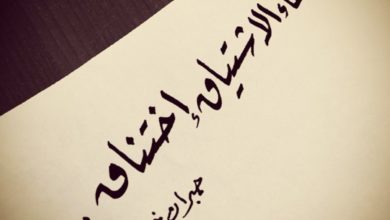 الاشتياق إختناق
جبران